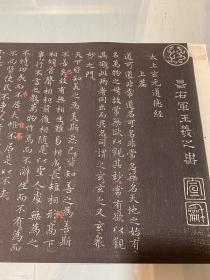 晉右軍王羲之書
太上玄元道德經
上篇
道可道非常道名可名非常名無名天地之始有
名萬物之母故常無欲以觀其妙常有欲以觀
其徼此兩者同出而異名同謂之玄玄之又玄衆
妙之門
天下皆知美之為美斯惡已皆知善之為善斯
不善已故有無相生難易相成長短相形高下
是以聖人處無為之
事行不言之教萬物作焉而不辭生而不有為而
不居夫惟不居是以不去
不尚賢使民